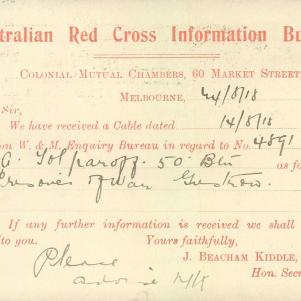 stralian Red Cross Information Bu
Colonial Mutual Chambers, 60 Market Street
Melbourne, 24/8/18
Sir,
We have received a Cable dated 14/8/18
on W. & M. Enquiry Bureau in regard to No. 4891
A. Tolparoff. 50. Btn as fo
Prisoner of War Gustrow.
If any further information is received we shall
to you. Yours faithfully,
Please J. Beacham Kiddle,
advise Hon. Secre